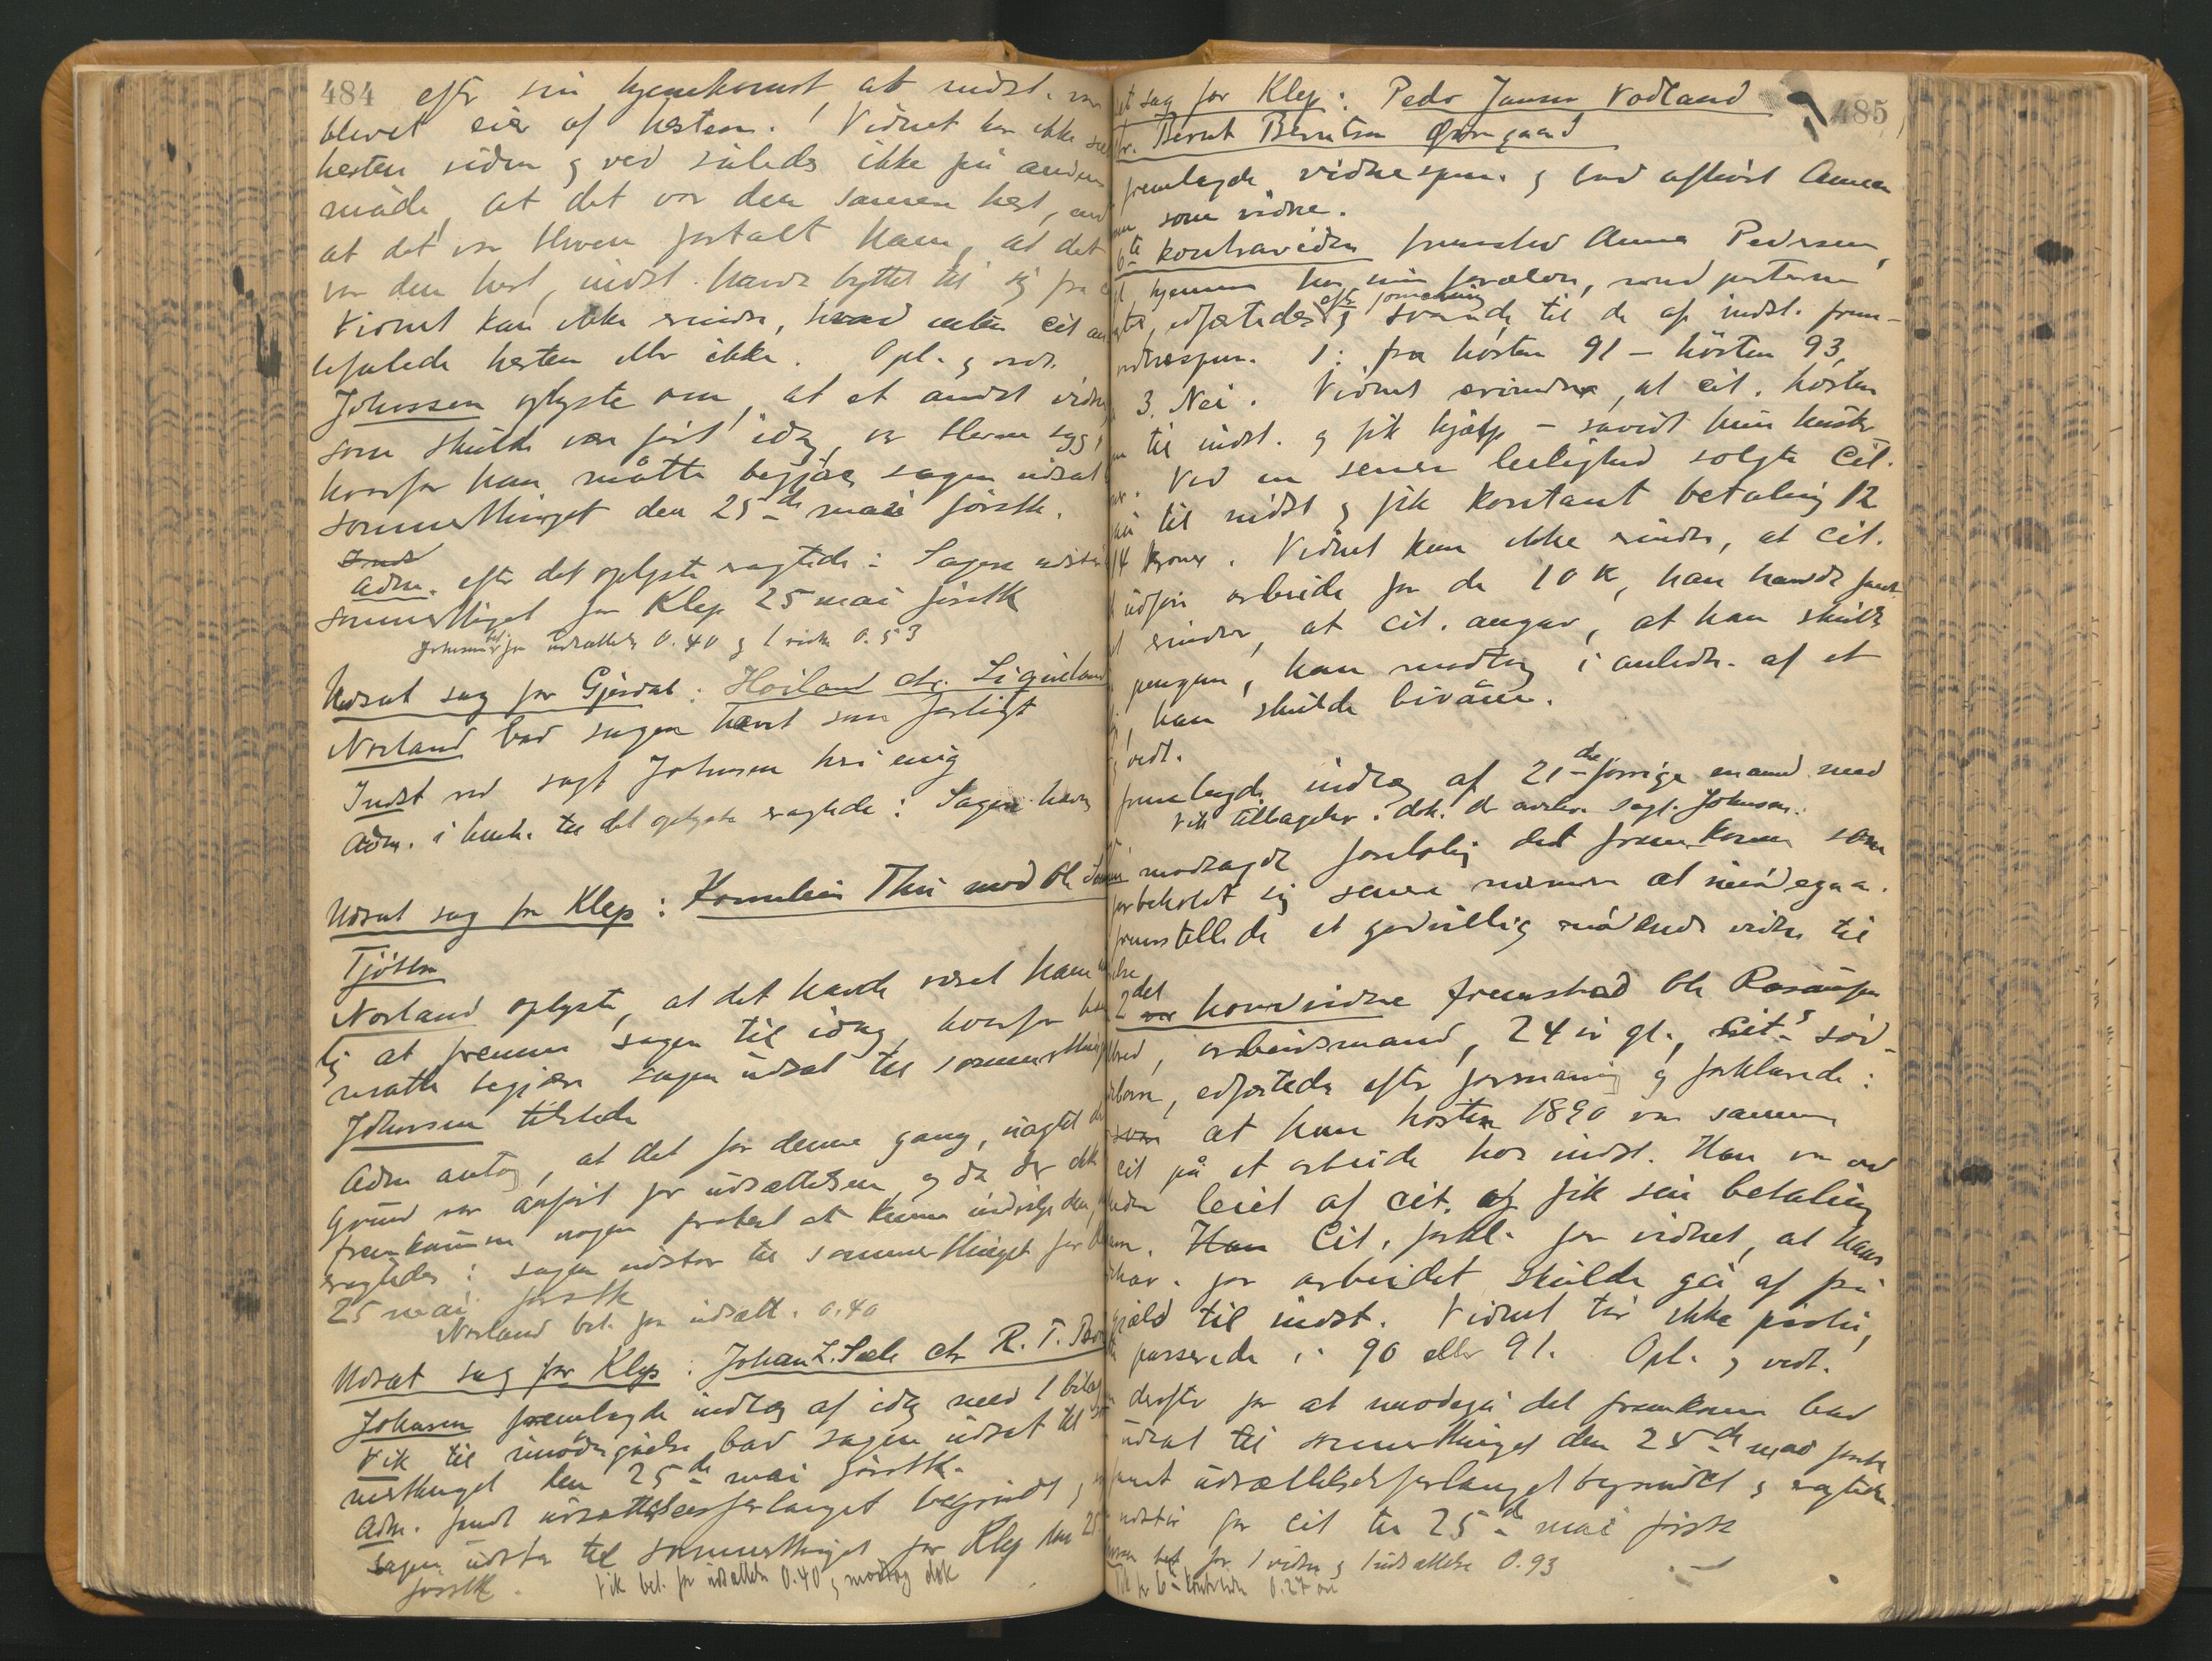 484 efter sin hjemkomst at indst. var
blevet eier af hesten. Vidnet har ikke
hesten siden og ved således ikke på anden
måde, at det var den samme hest, end
at det var Hiven fortalt ham, at det
var den hest, indst. havde byttet til sig fra
Vidnet kan ikke erindre, hvad enten cit an
befalede hesten eller ikke. Opl. og vedt.
Johnssen oplyste om, at et andet vidne
som skulde vær ført idag, var bleven syg,
hvorfor han måtte begjære sagen udsat
sommerthinget den 25de mai førstk.
Adm. efter det oplyste eragtede: Sagen udstår
sommerthinget for Klep 25 mai førstk
Johnsen bet. for udsættelse 0.40 og 1 vidne 0.53
Udsat sag for Gjesdal: Høiland ctr. Ligueland
Norland bad sagen hævet som forligt
Indst ved sagf Johnsen heri enig
Adm. i henh. til det oplyste eragtede: Sagen hæves
Udsat sag for Klep: Kornelius Thu mod Ole
Tjøtta
Norland oplyste, at det havde været ham
lig at fremme sagen til idag, hvorfor han
måtte begjære sagen udsat til sommerthinget
Johnsen tilstede
Adm antog, at det for denne gang, uagtet
Grund var anført for udsættelsen, og da der ikke
fremkommen nogen protest at kunne indvilge den,
eragtedes: sagen udstår til sommerthinget for
25 mai førstk
Norland bet. for udsætt. 0.40
Udsat sag for Klep: Johan L. Sæle ctr R. T.
Johnsen fremlagde indlæg af idag med 1 bilag
Vik til imødegåelse bad sagen udsat til
merthinget den 25de mai førstk.
Adm. fandt udsættelsesforlanget begrundet,
Sagen udstår til sommerthinget for Klep den 25
førstk. Vik bet. for udsættelse 0.40 og modtog dok
485
sag for Klep: Peder Jansen Vodland
ctr. Bernt Berntsen Øxnegaard
fremlagde vidnespm. og bad afhørt Anna
som vidne.
6te kontravidne fremstod Anna Pedersen,
hjemme hos sine forældre, med parterne
edfæstedes efter formaning og svarede til de af indst. frem-
vidnespm. 1: fra høsten 91 – høsten 93,
3. Nei. Vidnet erindrer, at cit. høsten
til indst. og fik hjælp – såvidt hun husker
Ved en senere leilighed solgte Cit.
til indst og fik kontant betaling 12
14 kroner. Vidnet kan ikke erindre, at cit.
udføre arbeide for de 10 K, han havde
erindrer, at cit. angav, at han skulde
pengene, han modtog i anledn. af et
han skulde bivåne.
vedt.
fremlagde indlæg af 21de forrige maaned med
Vik tilbagelev. dok. de overlev. sagf. Johnsen.
modsagde foreløbig det fremkomne som
forbeholdt sig senere nærmere at imødegaa.
fremstillede et godvillig mødende vidne til
2det hovedvidne fremstod Ole Rasmussen
arbeidsmand, 24 år gl., cit.s sød-
edfæstedes efter formaning og forklarede:
at han høsten 1890 var sammen
cit på et arbeide hos indst. Han var
leiet af cit. og fik sin betaling
Cit. forkl. for vidnet, at hans
for arbeidet skulde gå af på
gjæld til indst. Vidnet tør ikke påstå,
passerede i 90 eller 91. Opl. og vedt.
derefter for at imødegå det fremkomne bad
udsat til sommerthinget den 25de mai førstk
udsættelsesforlanget begrundet og eragtede
udstår for cit til 25de mai førstk
bet for 1 vidne og 1 udsættelse 0.93
Vik for 6te kontravidne 0.27 øre